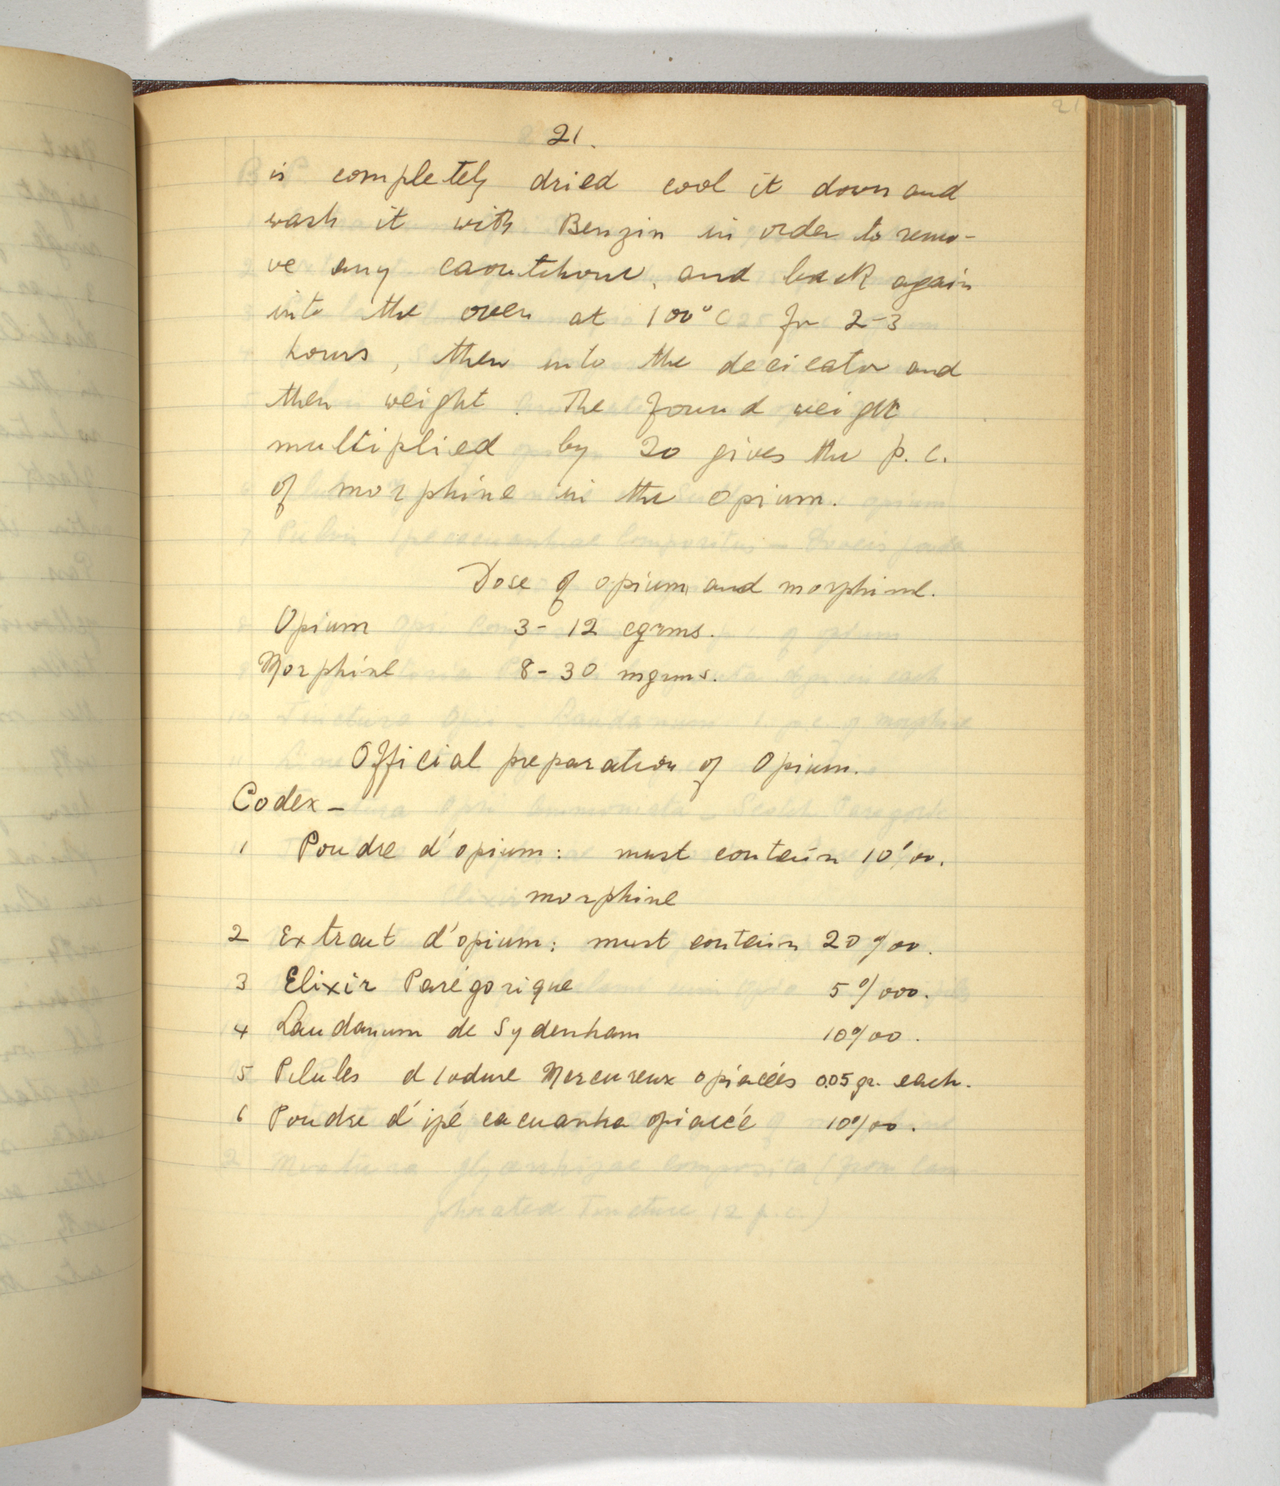 21
21.
is completely dried cool it down and
wash it with Benzin in order to remo-
ve any caoutchouc, and back again
into the oven at 100°C for 2-3
hours, then into the decicator and
then weight. The found weight
multiplied by 20 gives the p.c.
of morphine in the opium.
Dose of opium and morphine.
Opium 3-12 cgrms.
Morphine 8-30 mgrms.
Official preparation of Opium.
Codex -
1 Poudre d'opium: must contain 10%00.
morphine
2 Extrait d'opium: must contain 20%00.
3 Elixir Parégorique 5%000.
4 Laudanum de Sydenham 10%00.
5 Pilules d'Iodure Mercureux opiacées 0.05 gr. each.
6 Poudre d'ipécacuanha opiacée 10%00.